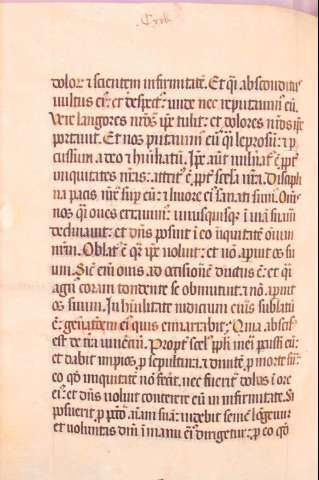 Cxvi
dolore ⁊ scientem infirmitatē. Et q̄i absconditus
uultus ei᷒: et despect᷒: unde nec reputauim᷒ eū.
Vere langores nr̄os ip̄e tulit: et dolores nr̄os ip̄e
portauit. Et nos putauim᷒ eū q̄i leprosū: ⁊ p
cussum a deo ⁊ hūiliatū. Ip̄e aūt uulnat᷒ ē ꝓpt̄
iniquitates nr̄as: attrit᷒ ē ꝓpt̄ scel̄a nr̄a. Discipli
na pacis nr̄e sup eū: ⁊ liuore ei᷒ sanati sum᷒. Om̄s
nos q̄i oues errauim᷒: unusquisq̄ ī uiā suam
declinauit: et dn̄s posuit ī eo iniquitatē oīum
nr̄m. Oblat᷒ ē q̄ ip̄e uoluit: et nō apuit os su
um. Sic̄ eni ouis ad occisionē ductus ē: et q̄i
agn᷒ coram tondente se obmutuit: ⁊ nō apuit
os suum. In hūilitate iudicium eius sublatū
ē: generatōem ei᷒ quis enarrabit; Quia absciss᷒
est de t̄ra uiuentiū. Propt̄ scel᷒ ppl̄i mei pcussi eū:
et dabit impios ꝓ sepultura: ⁊ diuitē ꝓ morte sua:
eo qd̄ iniquitatē nō fec̄it. nec fuerit dolus ī ore
ei᷒: et dn̄s uoluit conterere eū in infirmitate. Si
posuerit ꝓ pcc̄o aīam suā: uidebit semē longeuū:
et uoluntas dn̄i ī manu ei᷒ dirigetur: ꝓ eo qd̄